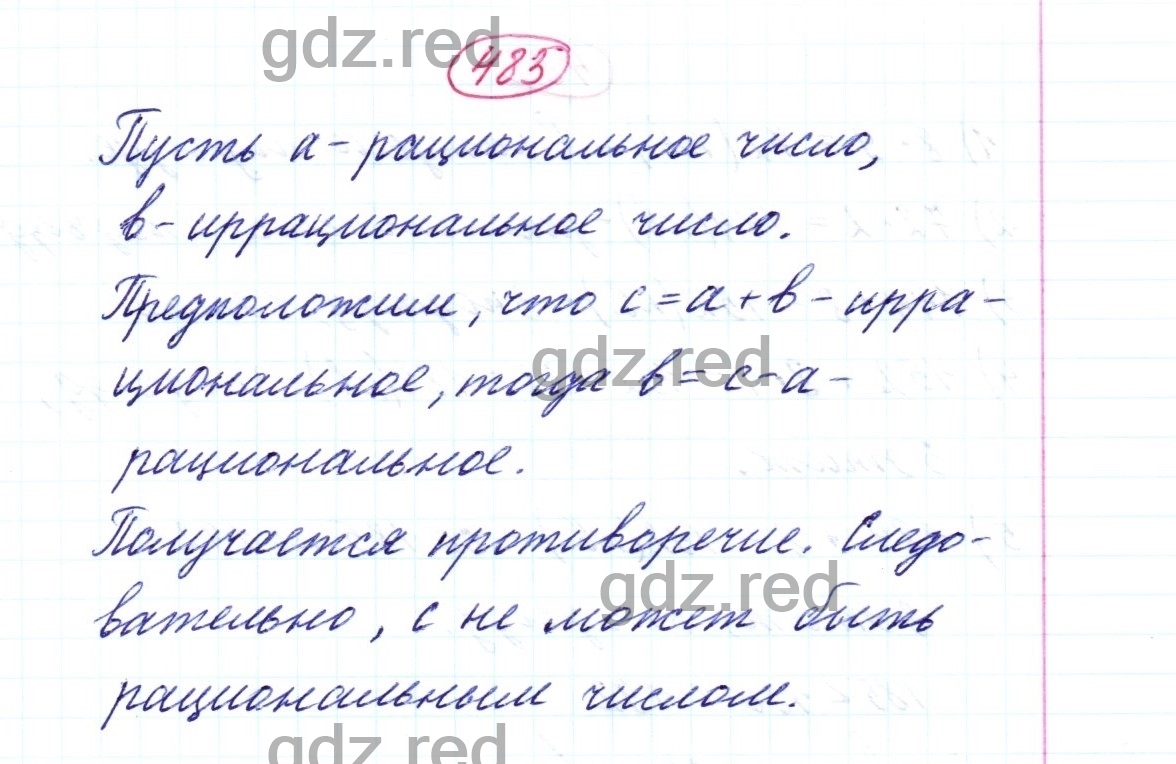 gdz.red
483
Пусть a - рациональное число,
в - иррациональное число.
Предположим, что c = a + в - ирра-
gdz.red
циональное, тогда в = c - a -
рациональное.
Получается противоречие. Следо-
gdz.red
вательно, c не может быть
рациональным числом.
gdz.red